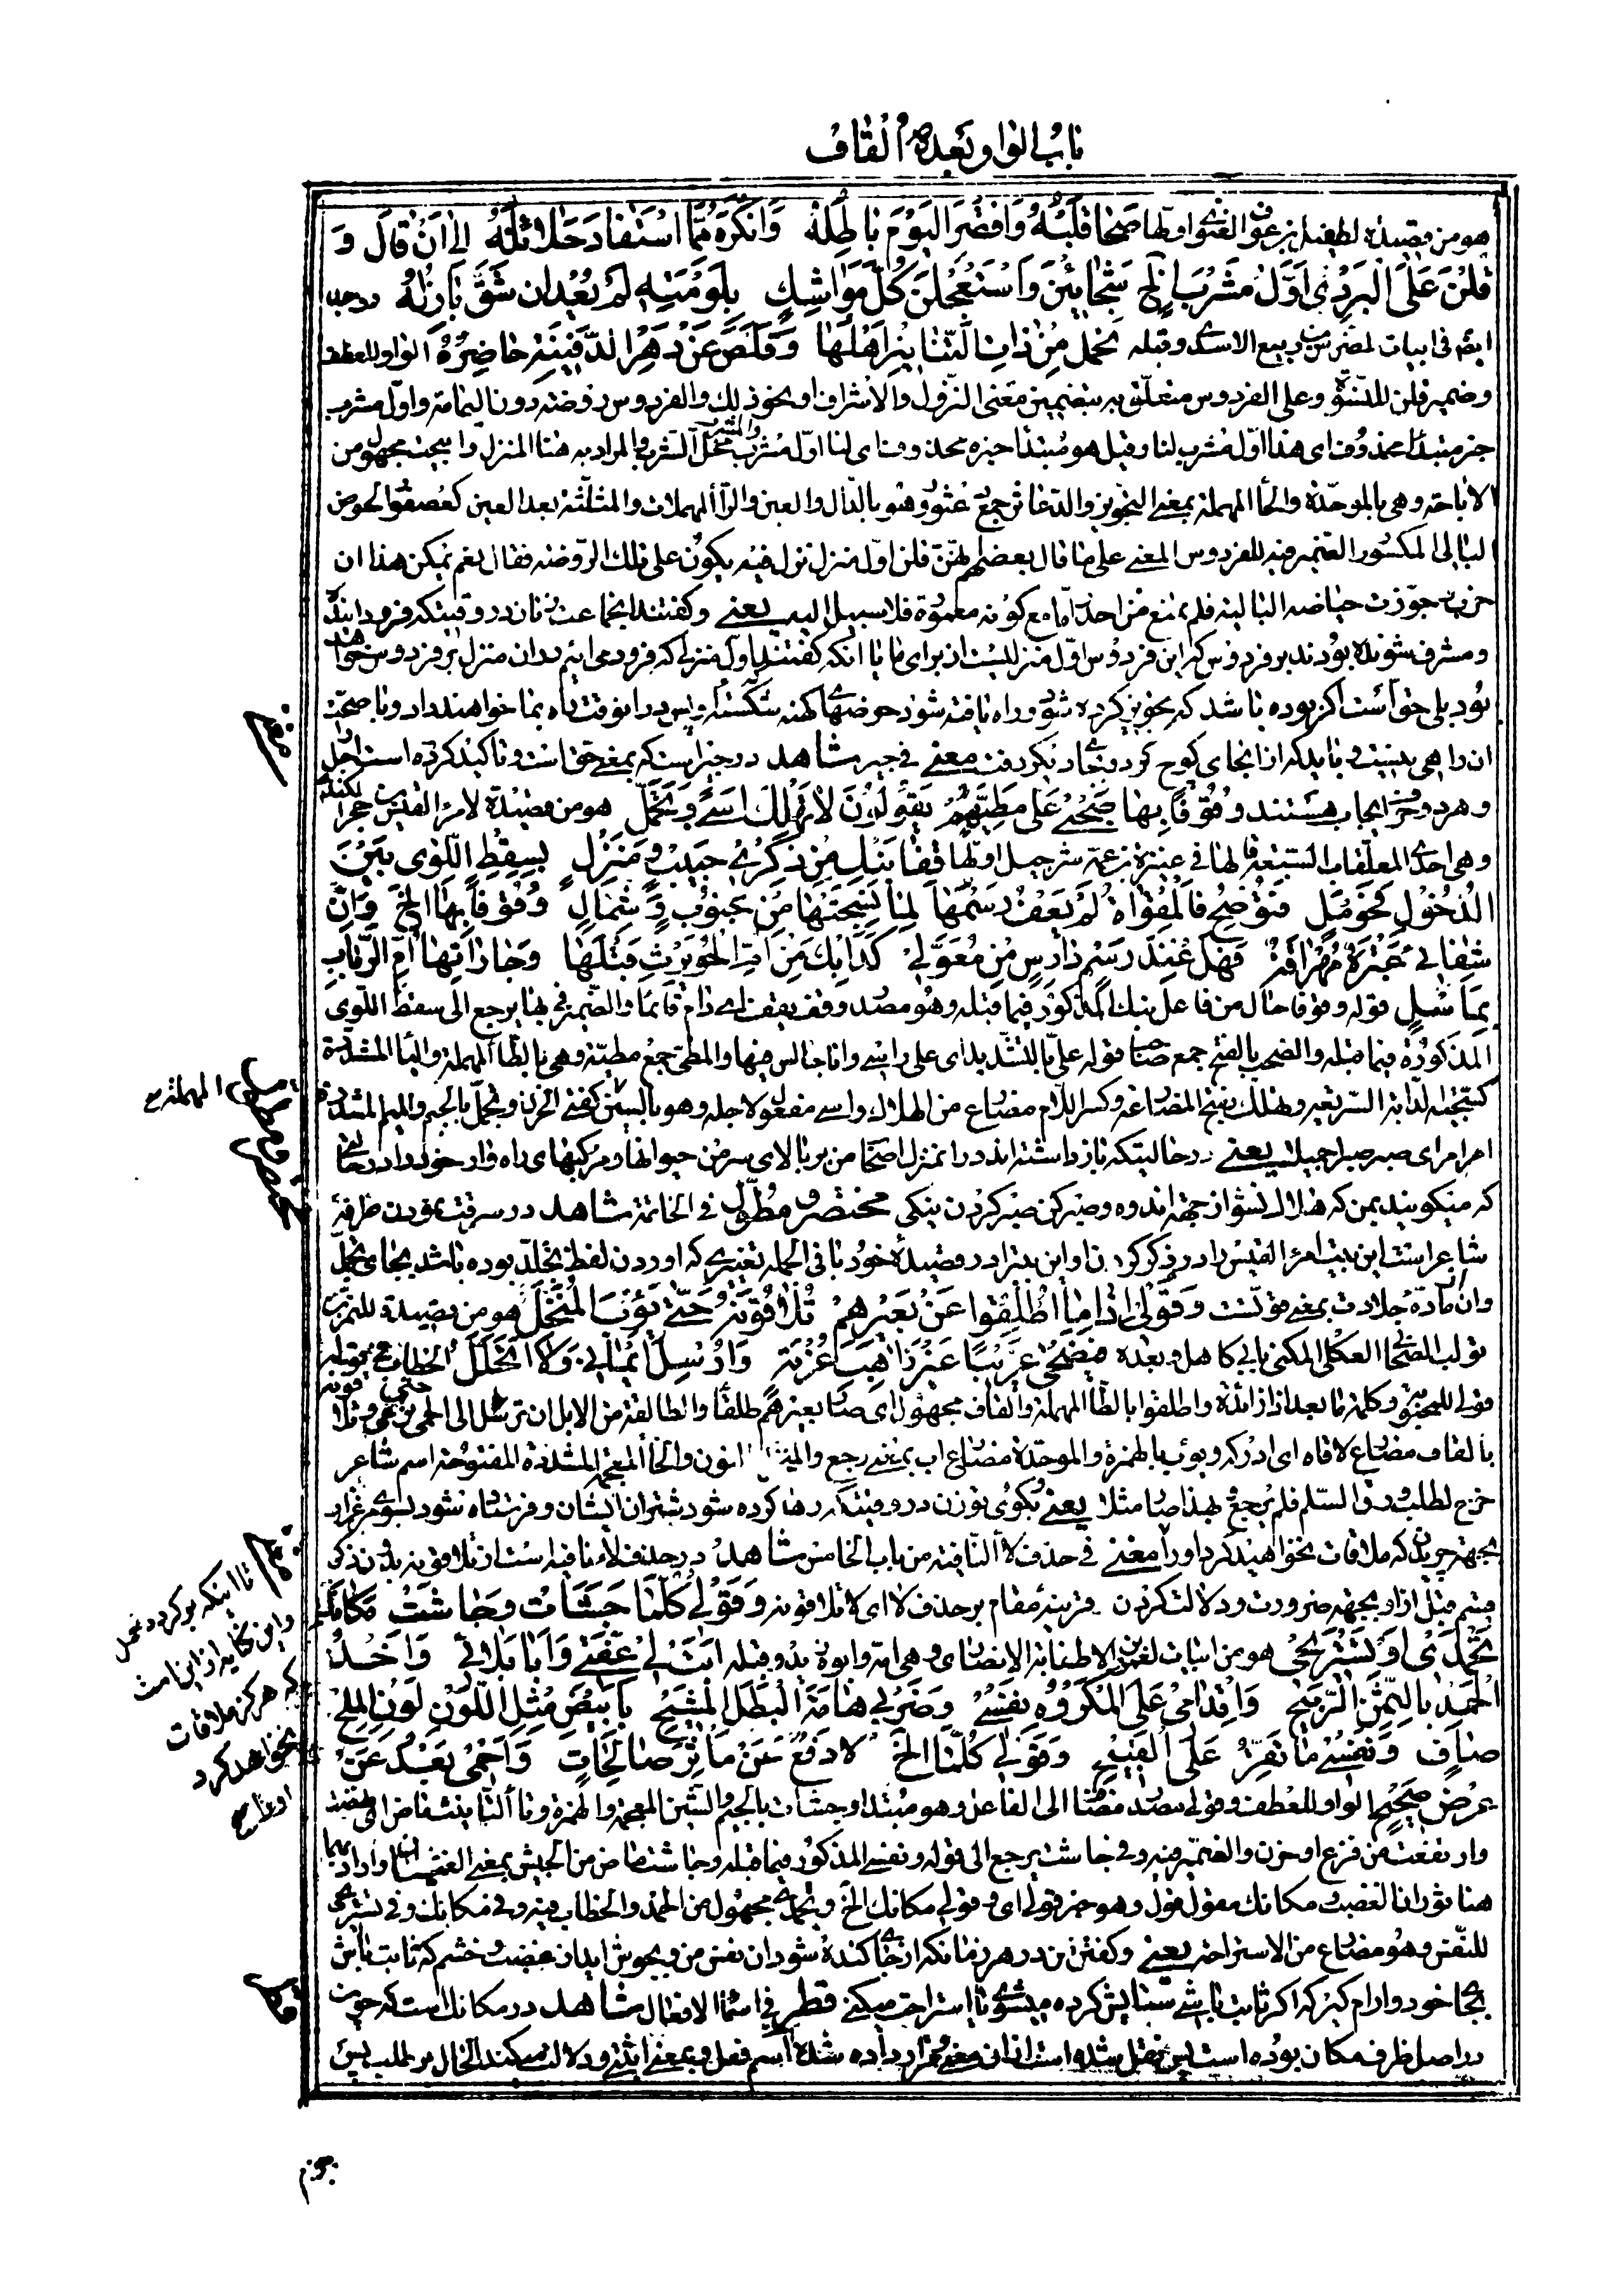 باب الواو بعده القاف
هو من قصيدة لطفيل بن عوف الغنوي اولها صحا قلبه واقصر اليوم باطله وانكره مما استفاد حلائله الى ان قال و
قلن على البردي اول مشرب الخ شجائين واستعجلن كل مواشك بلومته لم يعد ان شق بازله ورجله
ايضا فى ابيات لمضرس بن ربيع الاسدى وقبله تحمل من ذات التنانير اهلها وقلص عن دهر الدفينة حاضره الواو للعطف
وضمير قلن للنسوة وعلى الفردوس متعلق به بتضمين معنى النزول والاشراف او نحو ذلك والفردوس روضة دون اليمامة واول مشرب
خبر مبتدا محذوف اى هذا اول مشرب لنا وقيل هو مبتدا خبره محذوف اى لنا اول مشرب والمشرب محل الشرب والمراد به هنا المنزل وابيحت مجهول من
الاباحة وهى بالموحدة والحاء المهملة بمعنى التجويز والدعاثر جمع دعثور وهو بالدال والعين والراء المهملات والمثلثة بعد العين كعصفور الحوض
البالى المكسور الضمير فيه للفردوس المعنى على ما قال بعضهم انهن قلن اول منزل ننزل فيه يكون على تلك الروضة فقال نعم يمكن هذا ان
خربت جوزت حياضه البالية فلم يمنع من احد اما مع كونه معمورة فلا سبيل اليه يعنى وگفتند انجماعت زنان در وقتيكه فرود آينده
ومشرف شونده بودند بر فردوس كه اين فردوس اول منزليست از براى ما يا انكه گفتند اول منزلى كه فرود مى ائيم بدان منزل بر فردوس خواهد
بود بلى حق است اگر بوده باشد كه تجويز كرده شود و راه يافته شود حوضهاى كهنه شكسته او پس در انوقت راه بما خواهند داد و با صحت
ان راهى نيست و بايد كه از انجاى كوچ كرد و بجاى ديگر رفت مغنى فى جير شاهد در جير است كه بمعنى حق است وتاكيد كرده است اجل را
وهر دو حرف ايجاب هستند وقوفا بها صحبى على مطيهم يقولون لا تهلك اسى وتجمل هو من قصيدة لامرء القيس بن حجر الكندى
وهى احدى المعلقات السبعة قالها فى عنيزة بنت عمه شرحبيل اولها قفا نبك من ذكرى حبيب ومنزل بسقط اللوى بين
الدخول فحومل فتوضح فالمقراة لم يعف رسمها لما نسجتها من جنوب وشمال وقوفا بها الخ وان
شفائى عبرة مهراقة فهل عند رسم دارس من معول كدابك من ام الحويرث قبلها وجارتها ام الرباب
بماسل قوله وقوفا حال من فاعل نبك المذكور فيما قبله وهو مصدر وقف يقف اى دام قائما والضمير فى بها يرجع الى سقط اللوى
المذكورة فيما قبله والصحب بالفتح جمع صاحب قوله على بالتشديد اى على راسى وانا جالس فيها والمطى جمع مطية وهى بالطاء المهملة والياء المشددة
كسجية لدابة السريعة وتهلك بفتح المضارعة وكسر اللام مضارع من الهلاك واسى مفعول لاجله وهو بالسين كفتى الحزن وتجمل بالجيم والميم المشددة
امر اى صبر صبرا جميلا يعنى در حالتيكه باز داشته اند در انمنزل اصحاب من بر بالاى سر من حيوانها ومركبهاى راهوار خود را در حالتى
كه ميگويند بمن كه هلاك نشو از جهة اندوه وصبر كن صبر كردن نيكى مختصر و مطول فى الخاتمة شاهد در سرقت نمودن طرفه
شاعر است اين بيت امرء القيس را در ذكر كردن او اين بيت را در قصيده خود با فى الجمله تغييرى كه اوردن لفظ تجلد بوده باشد بجاى تجمل
وان ماده جلادت بمعنى قوتست وقولى اذا ما اطلقوا عن بعيرهم تلاقونه حتى يؤب المنخل هو من قصيدة للنمر بن
تولب الصحابى العكلى المكنى بابى كاهل وبعده فيضحى غريبا غير ذاهب غربة وارسل ايمانى ولا اتحلل الخطاب فى قوله
قولى للمحبوبة وكلمة ما بعد اذا زائدة واطلقوا بالطاء المهملة والقاف مجهول اى صار بعيرهم طلقا والطالقة من الابل ان ترسل الى الحمى وتلاقونه
بالقاف مضارع لاقاه اى ادركه ويؤب بالهمزة والموحدة مضارع اب بمعنى رجع والمنخل بالنون والخاء المعجمة المشددة المفتوحة اسم شاعر
خرج لطلب ورق السلم فلم يرجع فهذا صار مثلا يعنى بگوى تو زن در وقتيكه رها كرده شود شتران ايشان وفرستاده شود بسوى مرغزار
بجهة چريدن كه ملاقات نخواهيد كرد او را مغنى فى حذف لاء النافية من باب الخامس شاهد در حذف لاء نافيه است از تلاقونه بدون ذكر
قسم قبل از او بجهة ضرورت ودلالت كردن قرينه مقام بر حذف لا اى لا تلاقونه وقولى كلما جشات وجاشت مكانك
تحمدى او تستريحى هو من ابيات لعمرو بن الاطنابة الانصارى وهى امه وابوه زيد وقبله ابت لى عفتى وابى بلائى واخذى
الحمد بالثمن الربيح واقدامى على المكروه نفسى وضربى هامة البطل المشيح بابيض مثل اللون لون الملح
صاف ونفسى ما تقر على القبيح وقولى كلما الخ لادفع عن ماثر صالحات واحمى بعد عن
عرض صحيح الواو للعطف وقولى مصدر مضاف الى الفاعل وهو مبتدا وجشات بالجيم والشين المعجمة والهمزة وتاء التانيث ماض اى نهضت
وارتفعت من فزع او حزن والضمير فيه وفى جاشت يرجع الى قوله ونفسى المذكور فيما قبله وجاشت ماض من الجيش بمعنى الغضب وارادبهما
هنا ثوران الغضب ومكانك مقول قول وهو خبر قولى اى وقولى مكانك الخ وتحمدى مجهول من الحمد والخطاب فيه وفى مكانك وفى تستريحى
للنفس وهو مضارع من الاستراحة يعنى وگفتن من در هر زمانكه از جاى كنده شود ان نفس من وبجوش ايد از غضب وخشم كه ثابت باش
بجاى خود وارام گير كه اگر ثابت باشى ستايش كرده ميشوى يا استراحت ميكنى قطر فى اسماء الافعال شاهد در مكانك است كه چون
در اصل ظرف مكان بوده است پس نقل شده است از ان معنى و قرار داده شده اسم فعل و بمعنى اثبتى ودلالت ميكند الحال بر طلب پس
مغنى
المهملة
مختصر ومطول
مغنى
تا اينكه برگردد منخل
واين كنايه از اين است
كه هرگز ملاقات
نخواهد كرد
او را
قطر
جزم